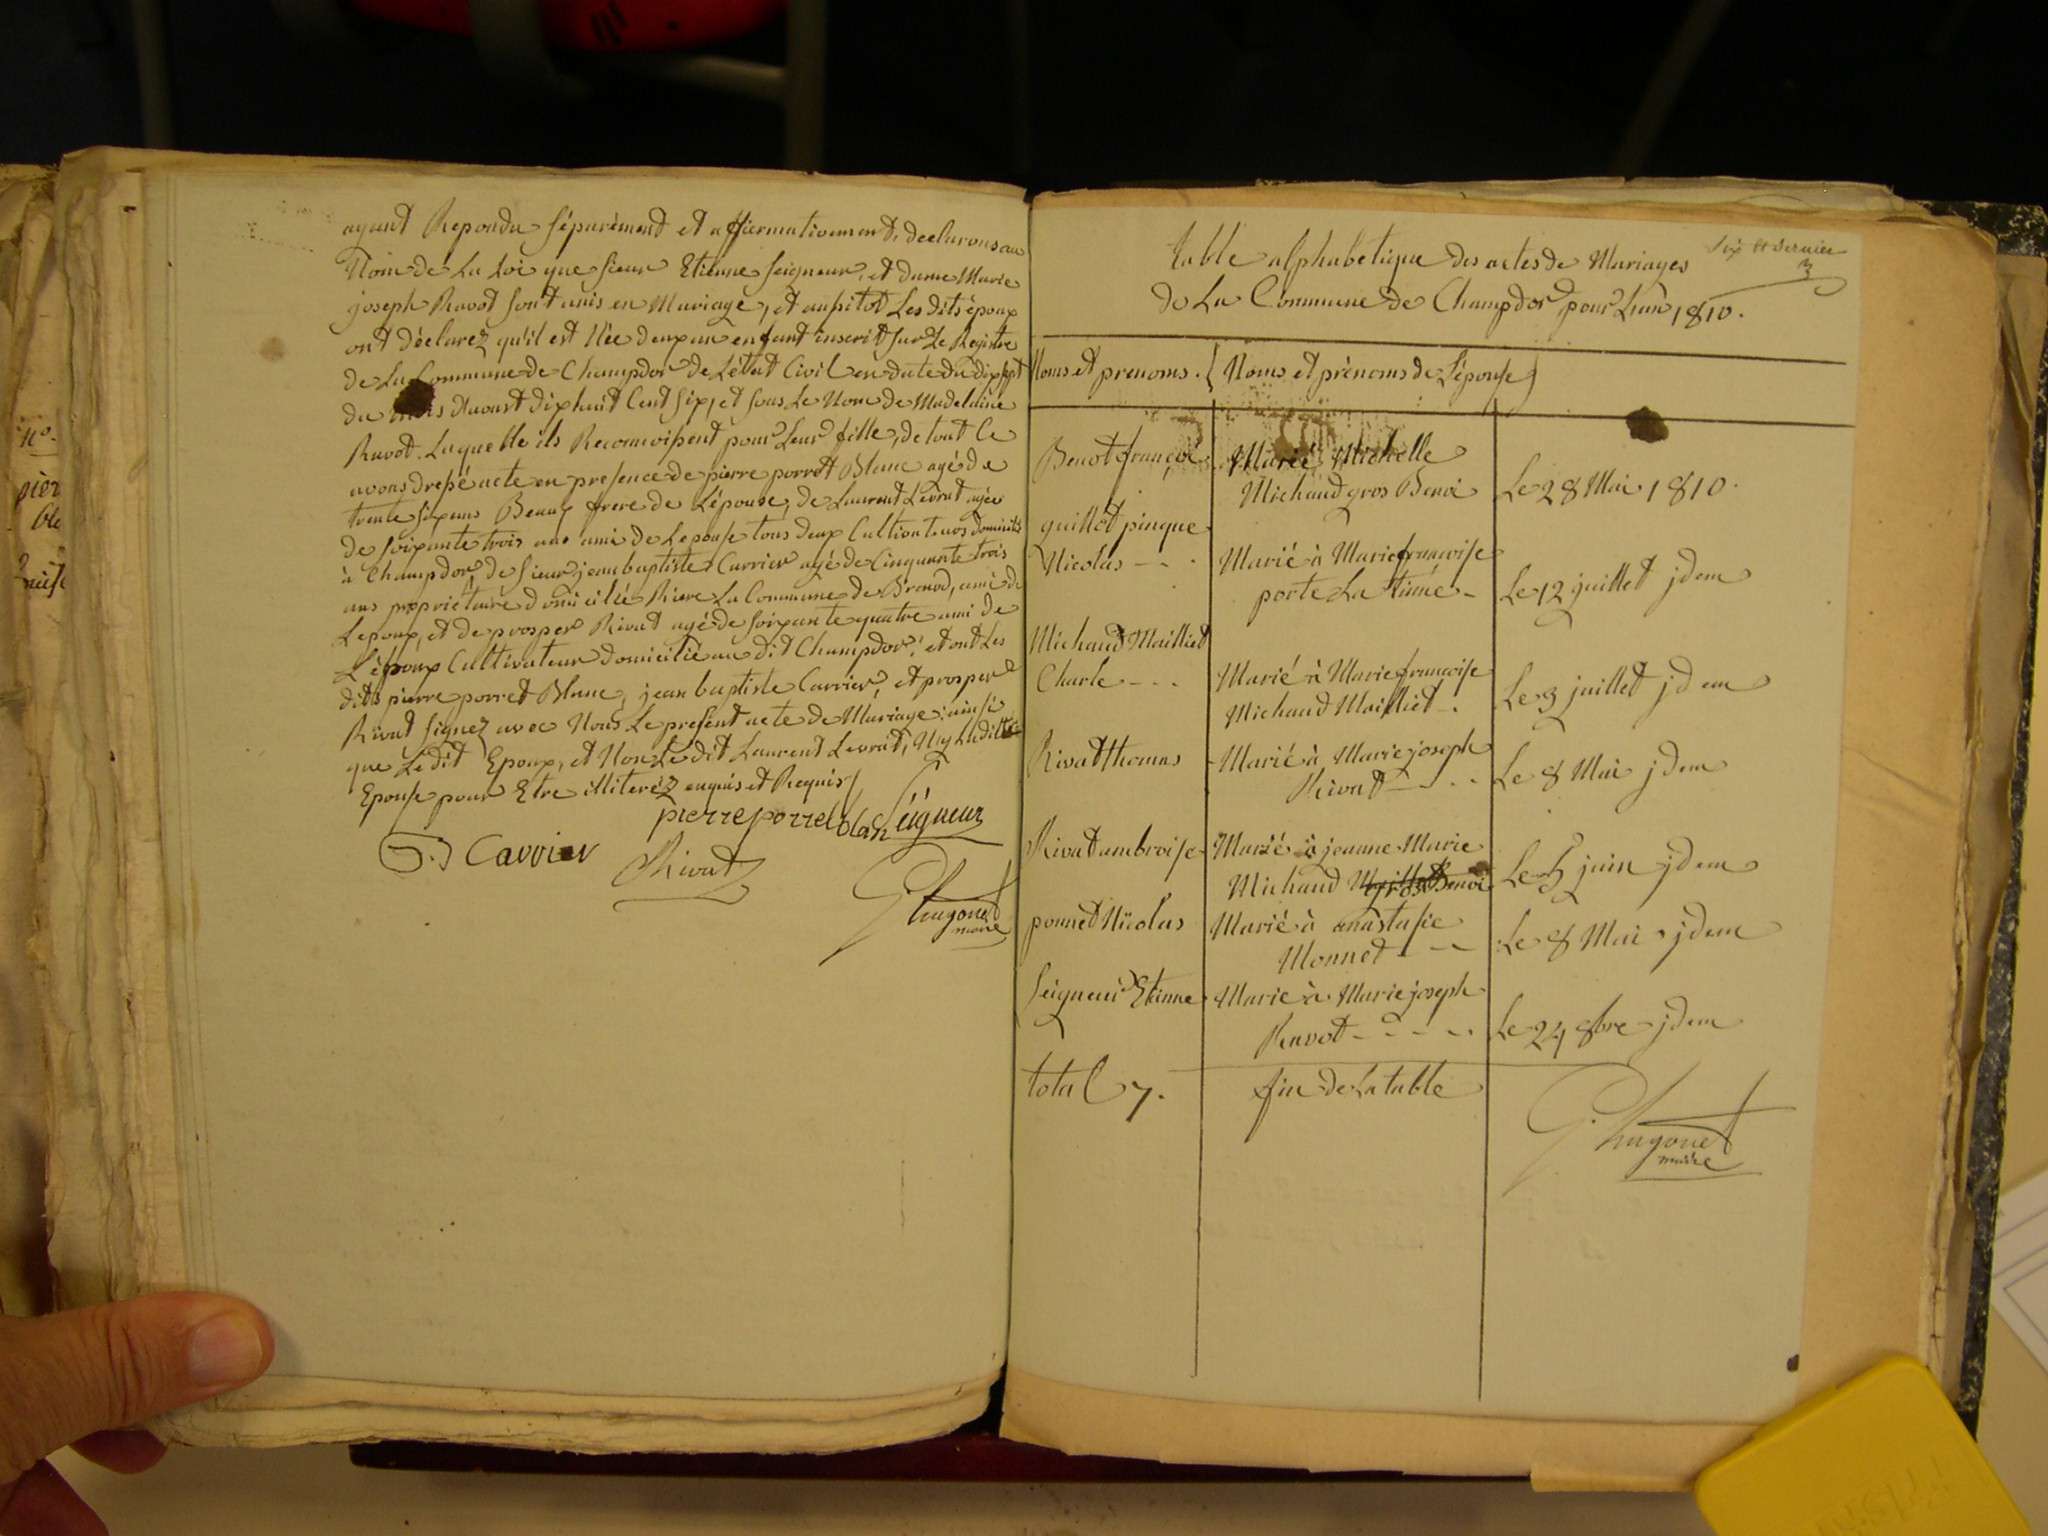 ayant Repondu séparément et affiermativement, declarons au
Nom de La Loi que sieur Etienne seigneur, et dame Marie
joseph Ravot sont unis en Mariage, et aussitot Les dits époux
ont déclarez qu'il est Née deux un enfant inscrit sur Le Registre
de La Commune de Champdor de L'état Civil en date du dix sept
du mois d'Aoust dix huit Cent six, et sous Le Nom de Madelaine
Ravot. Laquelle ils Reconnoissent pour Leur fille, de tout Ce
avons dressé acte en presence de pierre porret Blanc agé de
trente six ans Beaux frere de L'épouse, de Laurent Levrat agée
de soixante trois ans ami de L'epouse tous deux Cultivateurs domiciliés
à Champdor, de sieur jean baptiste Carrier agé de Cinquante trois
ans propriétaire domicilié Riere La Commune de Brenod, ami de
L'epoux, et de prosper Rivat agé de soixante quatre ami de
L'époux Cultivateur domicilié au dit Champdor, et ont Les
dits pierre porret Blanc, jean baptiste Carrier, et prosper
Rivat signez avec Nous Le present acte de Mariage ainsi
que Le dit Epoux, et Non Le dit Laurent Levrat, Ny Laditte
Epouse pour Etre illiterez enquis et Requis/
pierre porret blan Seigneur
Carrier
Rivat
G. hugonet
maire
nº.
pier
Six et dernier
table alphabetique des actes de Mariages
de La Commune de Champdor pour L'an 1810.
Noms et prenoms. Noms et prénoms de L'épouse
Benot françoi Marié Michelle
Michaud gros Benoi Le 28 Mai 1810.
guillot pinque
Nicolas - - - Marié à Marie françoise
porte La Timée - Le 12 juillet jdem
Michaud Mailliet
Charle - - - Marié à Marie françoise
Michaud Mailliet - . Le 3 juillet jdem
Rivat thomas Marié à Marie joseph
Rivat - - - Le 8 Mai jdem
Rivat ambroise Marié à jeanne Marie
Michaud gros Benoi Le 5 juin jdem
ponnet Nicolas Marié à anastasie
Monnet - - - Le 8 Mai jdem
Seigneur Etienne Marie à Marie joseph
Ravot - - - - - Le 24 8bre jdem
total 7. fin de La table
G. hugonet
maire